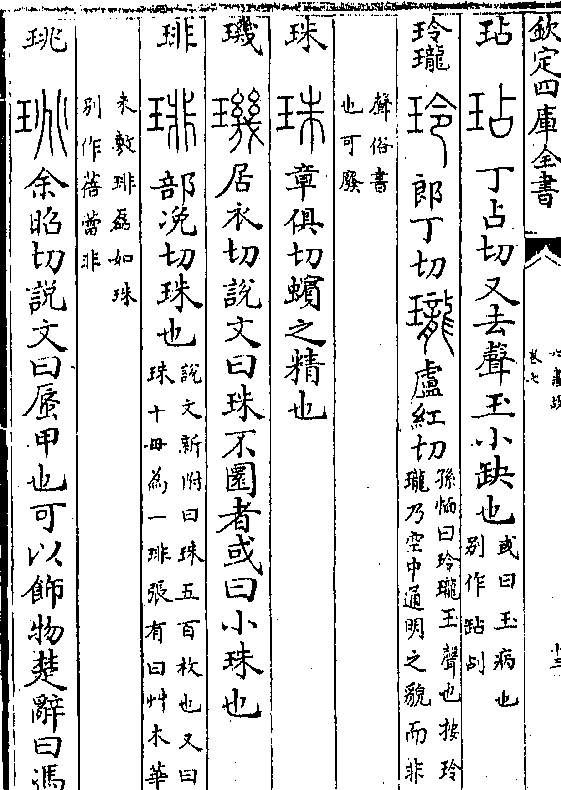 欽定四庫全書
卷七
十三
玷 玷 丁占切又去聲玉小缺也
或曰玉病也
别作
玲瓏 玲 郎丁切瓏盧紅切
孫愐曰玲瓏玉聲也按玲
瓏乃空中通明之貌而非
聲俗書
也可廢
珠 珠 章俱切蠙之精也
璣 璣 居衣切說文曰珠不圜者或曰小珠也
琲 琲 部浼切珠也
說文新附曰珠五百枚也又曰
珠十毋為一琲張有曰艸木華
未敷琲磊如珠
别作蓓蕾非
珧 珧 余昭切說文曰蜃甲也可以飾物楚辭曰馮